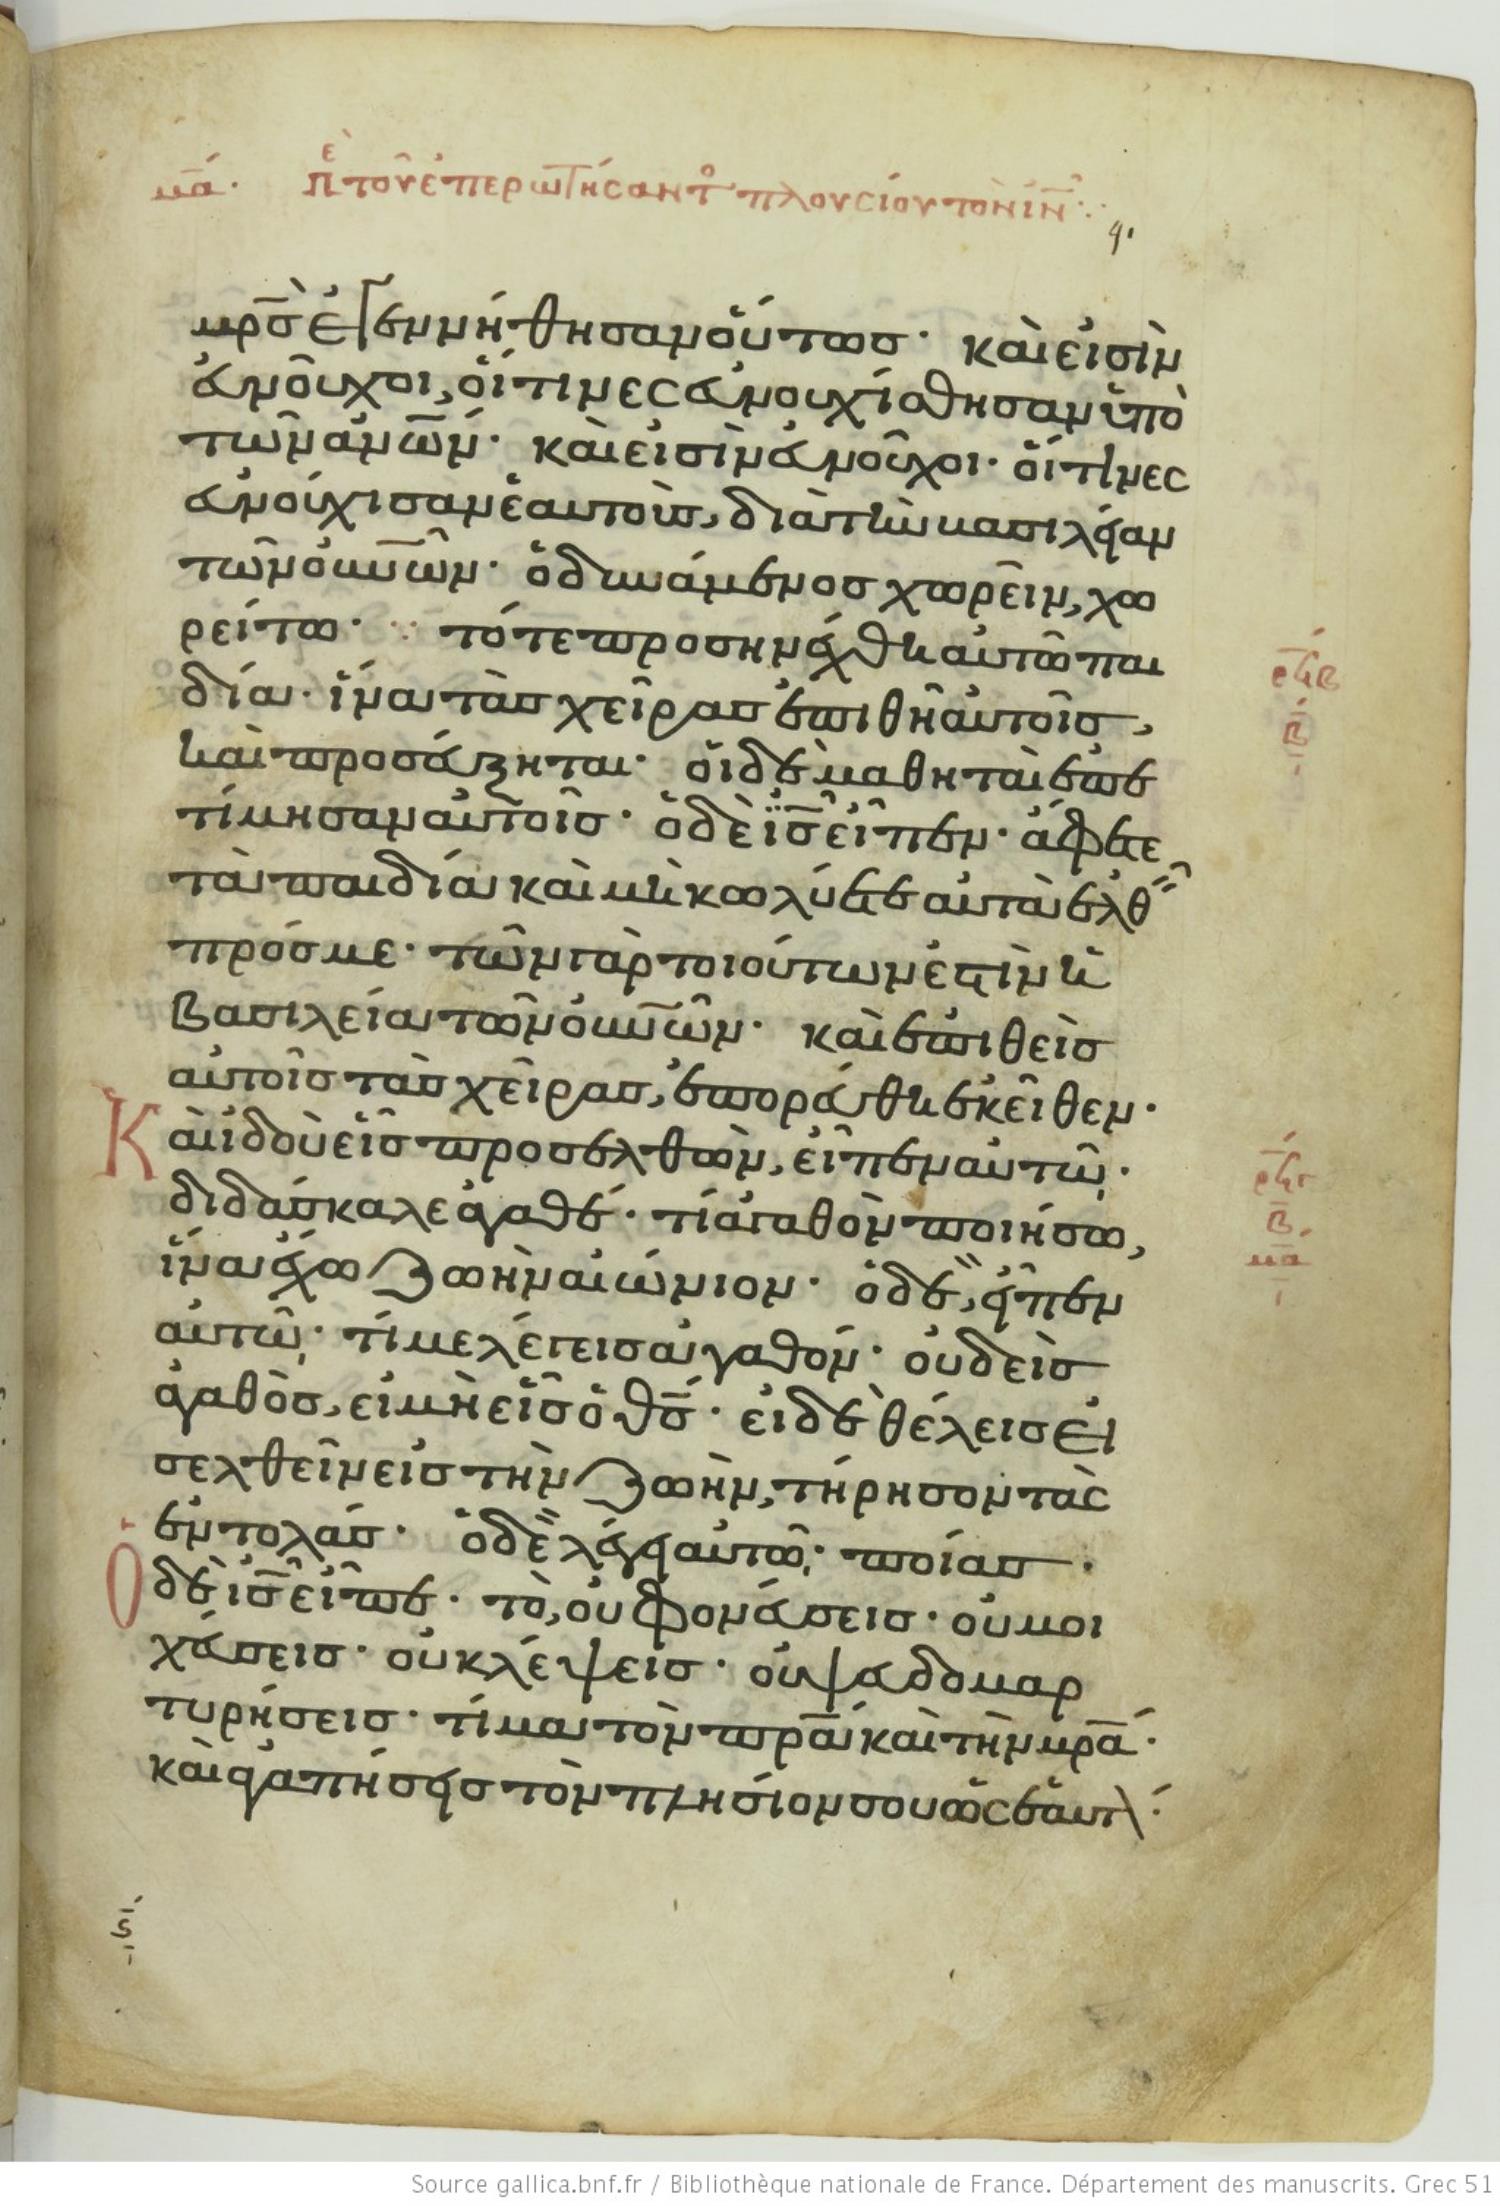 μα. Πε τοῦ ἐπερωτήσαντο πλουσίου τὸν ἰν̅
91
μρ̅σ ἐγεννήθησαν οὕτωσ· καὶ εἰσὶν
εὐνοῦχοι, οἵτινες εὐνουχίσθησαν ὑπὸ
τῶν ἀν̅ων· καὶ εἰσὶν εὐνοῦχοι· οἵτινες
εὐνούχισαν ἑαυτοὺσ, διὰ τὴν βασιλείαν
τῶν οὐν̅ῶν· ὁ δυνάμενοσ χωρεῖν, χω
ρείτω· τότε προσηνέχθη αὐτῶ παι
δία· ἵνα τὰσ χεῖρασ ἐπιθῆ αὐτοῖσ,
καὶ προσεύξηται· οἱ δὲ μαθηταὶ ἐπε
τίμησαν αὐτοῖσ· ὁ δὲ ἰ̅σ εἶπεν· ἄφετε
τὰ παιδία καὶ μὴ κωλύετε αὐτὰ ἐλθ
πρόσ με· τῶν γὰρ τοιούτων ἐστὶν ἡ
βασιλεία τῶν οὐν̅ῶν· καὶ ἐπιθεὶσ
αὐτοῖσ τὰσ χεῖρασ, ἐπορεύθη ἐκεῖθεν·
Καὶ ἰδοὺ εἷσ προσελθὼν, εἶπεν αὐτῶ·
διδάσκαλε ἀγαθέ· τί ἀγαθὸν ποιήσω,
ἵνα ἔχω ζωὴν αἰώνιον· ὁ δὲ, εἶπεν
αὐτῶ· τί με λέγεισ ἀγαθόν· οὐδεὶσ
ἀγαθὸσ, εἰ μὴ εἷσ ὁ θ̅σ· εἰ δὲ θέλεισ εἰ
σελθεῖν εἰσ τὴν ζωὴν, τήρησον τὰς
ἐντολάσ· ὁ δὲ λέγει αὐτῶ· ποίασ·
Ὁ δὲ ἰ̅σ εἶπε· τὸ, οὐ φονεύσεισ· οὐ μοι
χεύσεισ· οὐ κλέψεισ· οὐ ψευδομαρ
τυρήσεισ· τίμα τὸν πρ̅α καὶ τὴν μρ̅α·
καὶ ἀγαπήσεισ τὸν πλησίον σου ὡς ἑαυτ·
ρϟβ
β
ρϟγ
β
μα
ϛ
Source gallica.bnf.fr / Bibliothèque nationale de France. Département des manuscrits. Grec 51